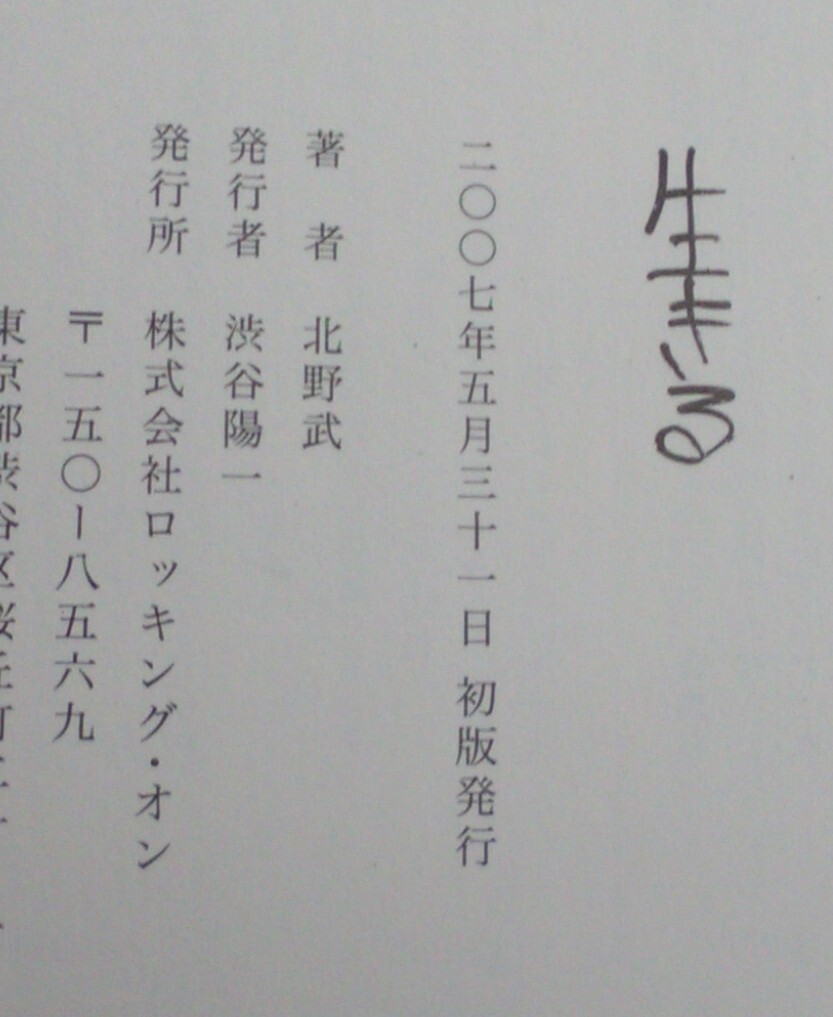 生きる
二〇〇七年五月三十一日 初版発行
著 者 北野武
発行者 渋谷陽一
発行所 株式会社ロッキング・オン
〒一五〇ー八五六九
東京都渋谷区桜丘町